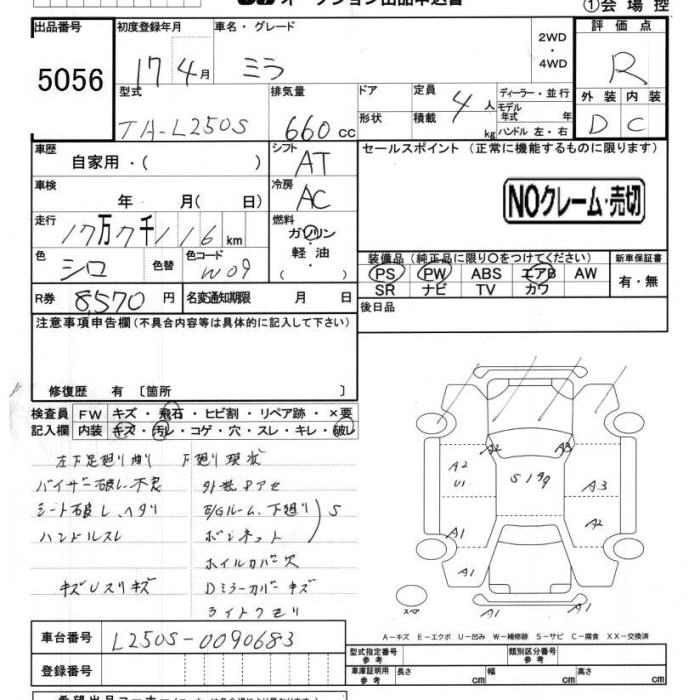 オークション出品申込書
①会場控
出品番号 初度登録年月 車名・グレード 評価点
5056
17年4月 ミラ 2WD・4WD R
型式 排気量 ドア 定員 ディーラー・並行 外装 内装
TA-L250S 660cc 形状 積載 4人 kg モデル年式 年 ハンドル 左・右 D C
車歴 シフト セールスポイント(正常に機能するものに限ります)
自家用・( ) AT
車検 冷房
年 月( 日) AC NOクレーム・売切
走行 燃料
17万7千116km ガソリン・軽油・( )
色 色替 色コード 装備品(純正品に限り○をつけてください) 新車保証書
シロ W09 PS PW ABS エアB AW 有・無
SR ナビ TV カワ
R券 8,570円 名変通知期限 月 日 後日品
注意事項申告欄(不具合内容等は具体的に記入して下さい)
修復歴 有〔箇所 〕
検査員 FW キズ・飛石・ヒビ割・リペア跡・×要
記入欄 内装 キズ・汚レ・コゲ・穴・スレ・キレ・破レ
左下足廻り 下廻り現状
バイザー破レ 外装
シート破レ、ヘタリ E/Gルーム、下廻り S
ハンドルスレ ボンネット
ホイルカバー穴
キズUスリキズ Dミラーカバーキズ
ライトクモリ
A2 A3
A2 U1 S199 A3
A1 A2
A1 A1
A1 A1
スペア
A-キズ E-エクボ U-凹み W-補修跡 S-サビ C-腐食 XX-交換済
車台番号 L250S-0090683
型式指定番号 参考 類別区分番号 参考
登録番号 車庫証明用 参考 長さ cm 幅 cm 高さ cm
希望出品コーナー